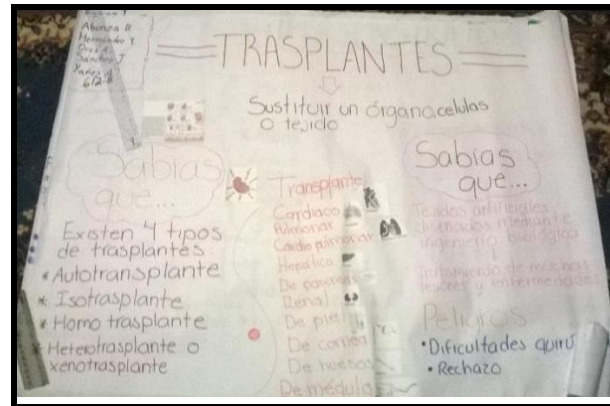 Abonza B
Hernández Y
Sánchez J
Yañez
612-B
TRASPLANTES
Sustituir un órgano, celulas
o tejido
Sabias
que...
Existen 4 tipos
de trasplantes
* Autotransplante
* Isotrasplante
* Homo trasplante
* Heterotrasplante o
xenotrasplante
Transplante
Cardiaco
Pulmonar
Cardio pulmonar
Hepático
De páncreas
Renal
De piel
De cornea
De huesos
De médula
Sabias
que...
Tejidos artificiales
diseñados mediante
ingeniería biológica
Tratamiento de muchas
lesiones y enfermedades
Peligros
• Dificultades quirú
• Rechazo